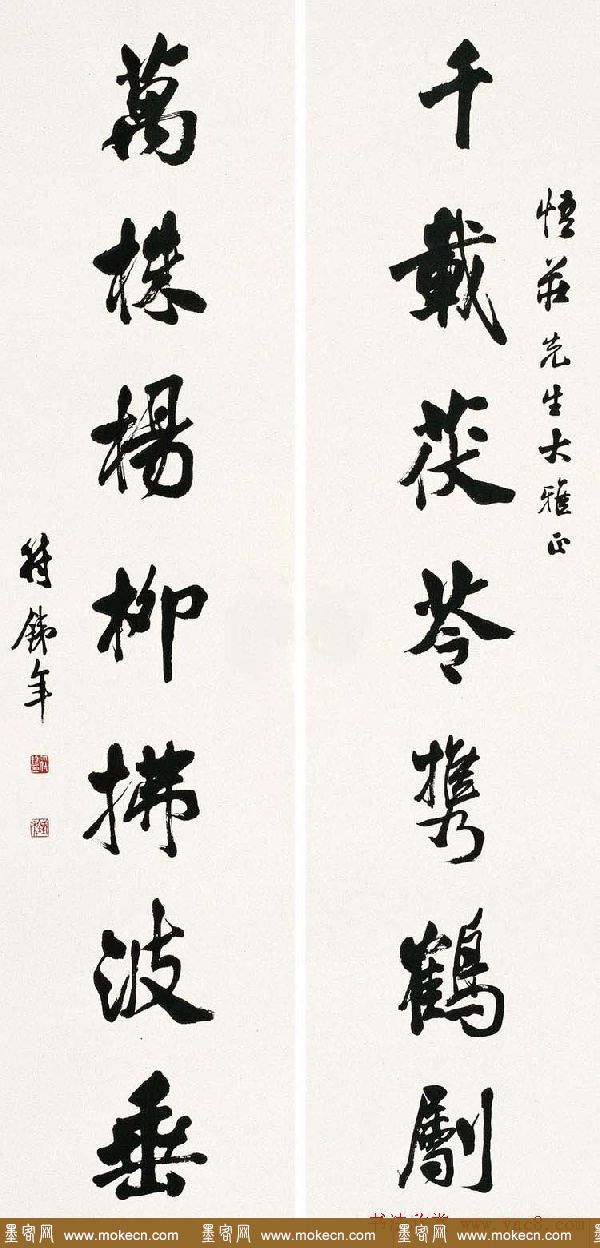 悟莊先生大雅正
千載茯苓攜鶴劚
萬株楊柳拂波垂
符鐵年
书法欣赏 www.yac8.com
墨客网 www.mokecn.com 墨客网 www.mokecn.com 墨客网 www.mokecn.com